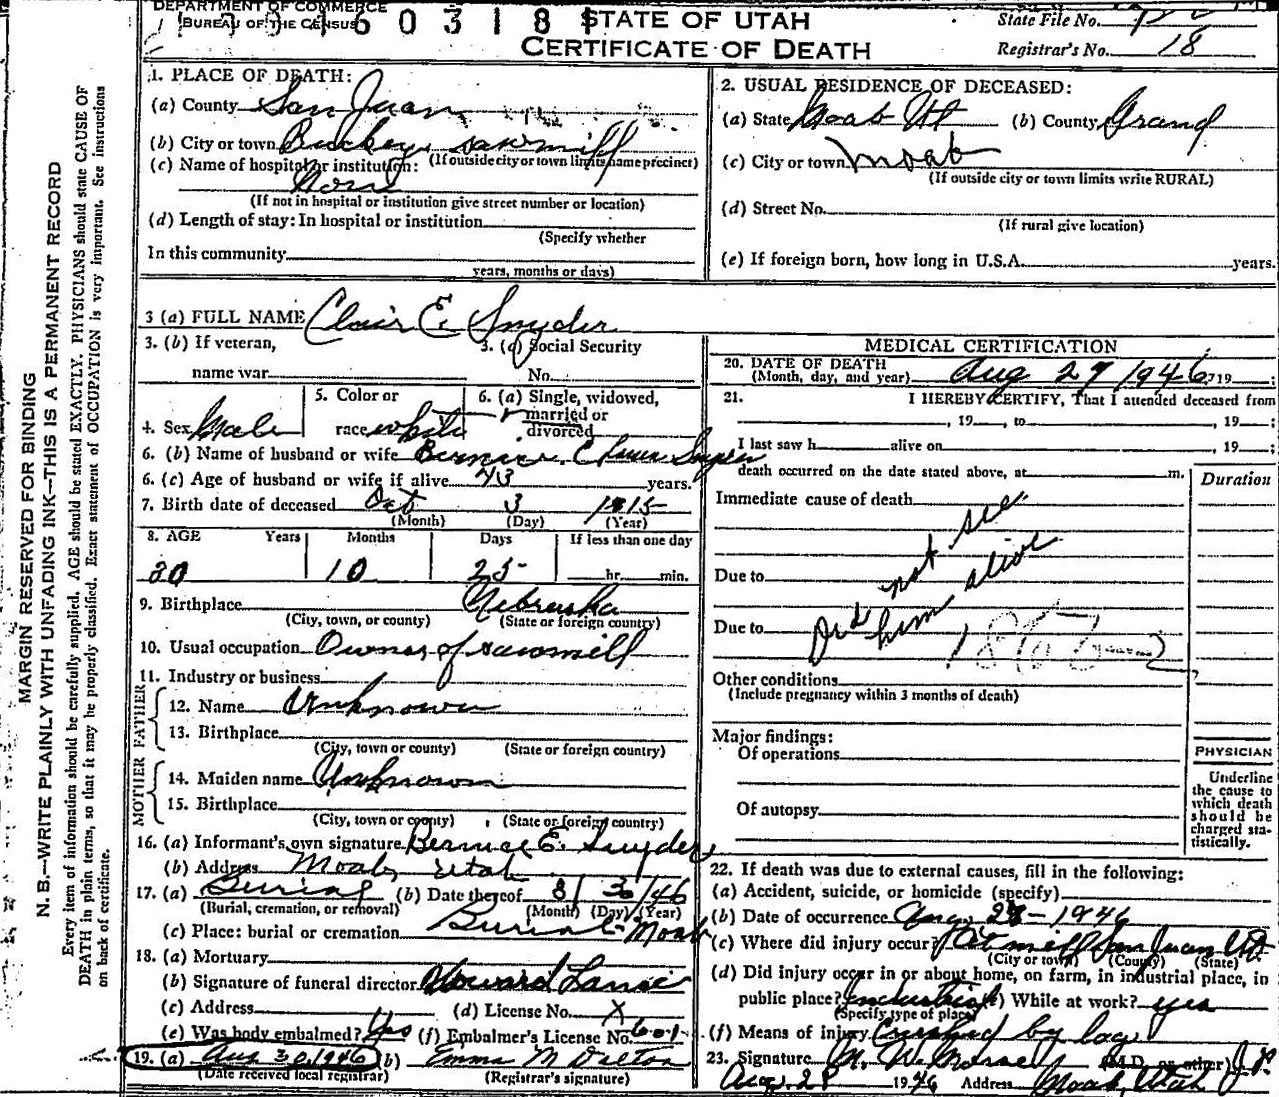 DEPARTMENT OF COMMERCE
BUREAU OF THE CENSUS
6 0 3 1 8 1
STATE OF UTAH
CERTIFICATE OF DEATH
State File No.
Registrar's No. 18
MARGIN RESERVED FOR BINDING
N. B.—WRITE PLAINLY WITH UNFADING INK—THIS IS A PERMANENT RECORD
Every item of information should be carefully supplied. AGE should be stated EXACTLY. PHYSICIANS should state CAUSE OF
DEATH in plain terms, so that it may be properly classified. Exact statement of OCCUPATION is very important. See instructions
on back of certificate.
1. PLACE OF DEATH:
(a) County San Juan
(b) City or town Buckeye sawmill
(If outside city or town limits name precinct)
(c) Name of hospital or institution:
None
(If not in hospital or institution give street number or location)
(d) Length of stay: In hospital or institution
(Specify whether
In this community
years, months or days)
2. USUAL RESIDENCE OF DECEASED:
(a) State Moab Ut (b) County Grand
(c) City or town Moab
(If outside city or town limits write RURAL)
(d) Street No.
(If rural give location)
(e) If foreign born, how long in U.S.A. years.
3 (a) FULL NAME Clair E. Snyder
3. (b) If veteran,
name war
3. (c) Social Security
No.
4. Sex Male
5. Color or
race white
6. (a) Single, widowed,
married or
divorced
6. (b) Name of husband or wife Bernice
6. (c) Age of husband or wife if alive 43 years.
7. Birth date of deceased Oct 3 1915
(Month) (Day) (Year)
8. AGE Years Months Days If less than one day
30 10 25 hr. min.
9. Birthplace Nebraska
(City, town, or county) (State or foreign country)
10. Usual occupation Owner of sawmill
11. Industry or business
FATHER
12. Name Unknown
13. Birthplace
(City, town or county) (State or foreign country)
MOTHER
14. Maiden name Unknown
15. Birthplace
(City, town or county) (State or foreign country)
16. (a) Informant's own signature Bernice E. Snyder
(b) Address Moab, Utah
17. (a) Burial (b) Date thereof 8/30/46
(Burial, cremation, or removal) (Month) (Day) (Year)
(c) Place: burial or cremation Burial - Moab
18. (a) Mortuary
(b) Signature of funeral director Howard Lance
(c) Address (d) License No. X
(e) Was body embalmed? Yes (f) Embalmer's License No. 601
19. (a) Aug 30 1946 (b) Emma M Dalton
(Date received local registrar) (Registrar's signature)
MEDICAL CERTIFICATION
20. DATE OF DEATH
(Month, day, and year) Aug 27 1946, 19 ;
21. I HEREBY CERTIFY, That I attended deceased from
, 19 , to , 19 ;
I last saw h alive on , 19 ;
death occurred on the date stated above, at m.
Duration
Immediate cause of death
Due to
Due to
Did not see
him alive
Other conditions
(Include pregnancy within 3 months of death)
Major findings:
Of operations
Of autopsy
PHYSICIAN
Underline
the cause to
which death
should be
charged sta-
tistically.
22. If death was due to external causes, fill in the following:
(a) Accident, suicide, or homicide (specify)
(b) Date of occurrence Aug. 28 - 1946
(c) Where did injury occur? At mill San Juan Ut.
(City or town) (County) (State)
(d) Did injury occur in or about home, on farm, in industrial place, in
public place? Industrial (e) While at work? yes
(Specify type of place)
(f) Means of injury Crushed by log
23. Signature M. W. (M.D. or other) J.P.
Aug. 28 1946 Address Moab, Utah